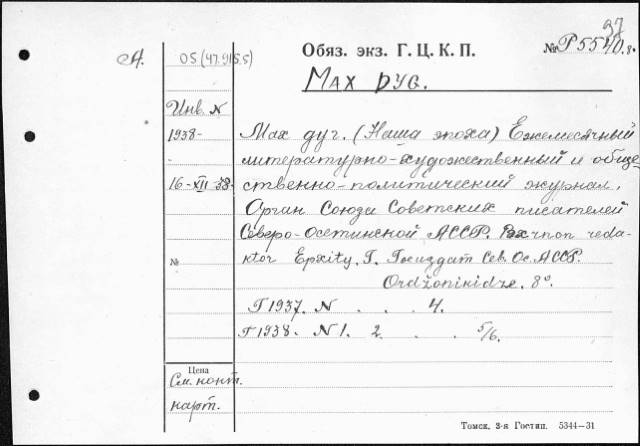 37
А. 05(47.915.5) Обяз. экз. Г. Ц. К. П. № Р5540 8.
Max dyg.
Инв. N
1938- Max дуг. (Наша эпоха) Ежемесячный
- литературно-художественный и обще-
16-XII-38. ственно-политический журнал.
Орган Союза Советских писателей
Северо-Осетинской АССР. reda-
№ ktor Epxity, T. Госиздат Сев. Ос. АССР.
Ordžonikidze. 8°.
Г 1937. N . . . 4.
Г 1938. N 1. 2 . . 5/6.
Цена
См. конт.
карт.
Томск, 3-я Гостип. 5344—31